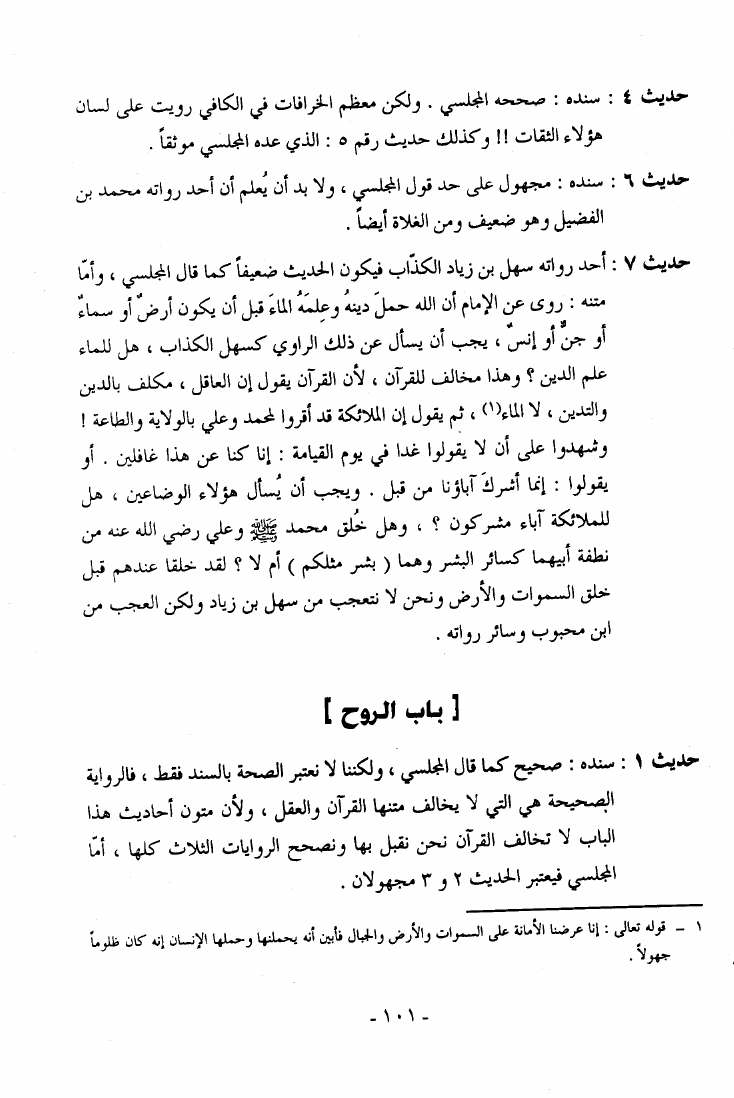 حديث ٤ : سنده : صححه المجلسي . ولكن معظم الخرافات في الكافي رويت على لسان
هؤلاء الثقات !! وكذلك حديث رقم ٥ : الذي عده المجلسي موثقاً .
حديث ٦ : سنده : مجهول على حد قول المجلسي ، ولا بد أن يُعلم أن أحد رواته محمد بن
الفضيل وهو ضعيف ومن الغلاة أيضاً .
حديث ٧ : أحد رواته سهل بن زياد الكذّاب فيكون الحديث ضعيفاً كما قال المجلسي ، وأمّا
متنه : روى عن الإمام أن الله حملَ دينهُ وعِلمَهُ الماءَ قبل أن يكون أرضٌ أو سماءٌ
أو جنٌّ أو إنسٌ ، يجب أن يسأل عن ذلك الراوي كسهل الكذاب ، هل للماء
علم الدين ؟ وهذا مخالف للقرآن ، لأن القرآن يقول إن العاقل ، مكلف بالدين
والتدين ، لا الماء(١) ، ثم يقول إن الملائكة قد أقروا لمحمد وعلي بالولاية والطاعة !
وشهدوا على أن لا يقولوا غدا في يوم القيامة : إنا كنا عن هذا غافلين . أو
يقولوا : إنما أشركَ آباؤنا من قبل . ويجب أن يُسأل هؤلاء الوضاعين ، هل
للملائكة آباء مشركون ؟ ، وهل خُلق محمد ﷺ وعلي رضي الله عنه من
نطفة أبيهما كسائر البشر وهما ( بشر مثلكم ) أم لا ؟ لقد خلقا عندهم قبل
خلق السموات والأرض ونحن لا نتعجب من سهل بن زياد ولكن العجب من
ابن محبوب وسائر رواته .
[ باب الروح ]
حديث ١ : سنده : صحيح كما قال المجلسي ، ولكننا لا نعتبر الصحة بالسند فقط ، فالرواية
الصحيحة هي التي لا يخالف متنها القرآن والعقل ، ولأن متون أحاديث هذا
الباب لا تخالف القرآن نحن نقبل بها ونصحح الروايات الثلاث كلها ، أمّا
المجلسي فيعتبر الحديث ٢ و ٣ مجهولان .
١ – قوله تعالى : إنا عرضنا الأمانة على السموات والأرض والجبال فأبين أنه يحملنها وحملها الإنسان إنه كان ظلوماً
جهولاً .
- ١٠١ -